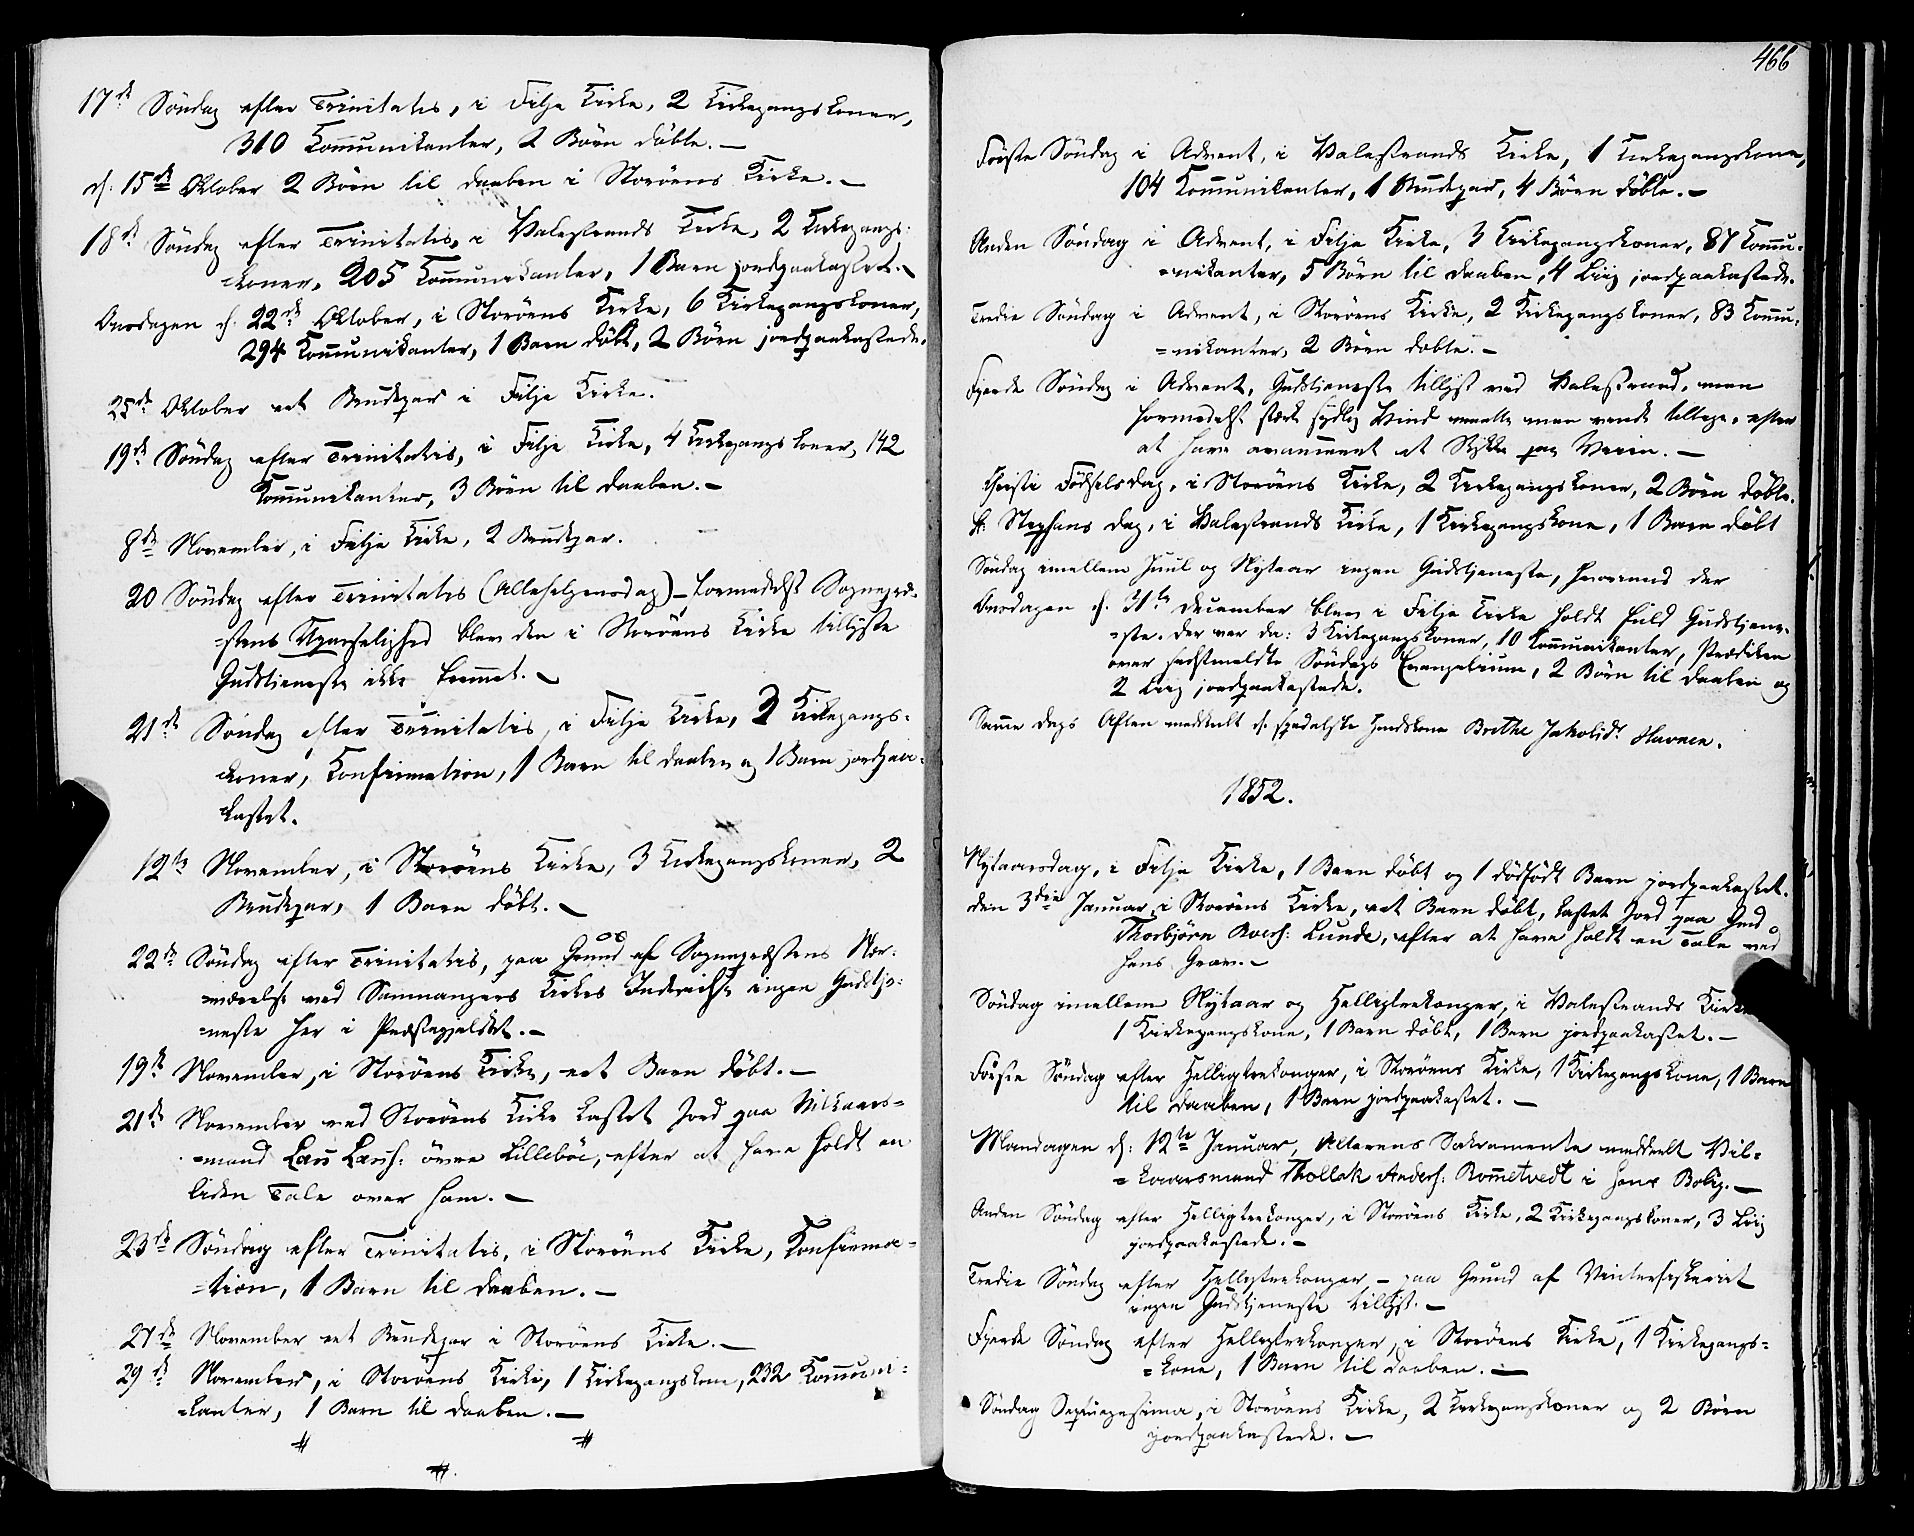 17de Söndag efter Trinitatis, i Fitje Kirke, 2 Kirkegangskoner,
310 Kommunikanter, 2 Börn döbte. —
d: 15de Oktober 2 Börn til Daaben i Storöens Kirke. —
18de Söndag efter Trinitatis, i Valestrands Kirke, 2 Kirkegangs-
=koner, 205 Kommunikanter, 1 Barn jordpaakastet. —
Onsdagen d. 22de Oktober, i Storöens Kirke, 6 Kirkegangskoner,
294 Kommunikanter, 1 Barn döbt, 2 Börn jordpaakastede.
25de Oktober eet Brudepar i Fitje Kirke.
19de Söndag efter Trinitatis, i Fitje Kirke, 4 Kirkegangskoner, 142
Kommunikanter, 3 Börn til Daaben. —
8de November, i Fitje Kirke, 2 Brudepar.
20 Söndag efter Trinitatis (Allehelgensdag) — formedelst Sognepræ-
=stens Upasselighed blev den i Storöens Kirke tillyste
Gudstjeneste ikke fremmet. —
21de Söndag efter Trinitatis, i Fitje Kirke, 2 Kirkegangs=
=koner, Konfirmation, 1 Barn til Daaben og 1 Barn jordpaa=
=kastet.
12te November, i Storöens Kirke, 3 Kirkegangskoner, 2
Brudepar, 1 Barn döbt. —
22de Söndag efter Trinitatis, paa Grund af Sognepræstens Nær-
=værelse ved Samnangers Kirkes Indvielse ingen Gudstje-
=neste her i Præstegjeldet. —
19de November, i Storöens Kirke, eet Barn döbt. —
21de November ved Storöens Kirke kastet Jord paa Vilkaars=
=mand Lars Larss: övre Lilleböe, efter at have holdt en
liden Tale over ham. —
23de Söndag efter Trinitatis, i Storöens Kirke, Konfirma=
=tion, 1 Barn til Daaben. —
27de November eet Brudepar i Storöens Kirke. —
29de November, i Storöens Kirke, 1 Kirkegangskone, 232 Kommuni=
=kanter, 1 Barn til Daaben. —
466
Förste Söndag i Advent, i Valestrands Kirke, 1 Kirkegangskone,
104 Kommunikanter, 1 Brudepar, 4 Börn döbte. —
Anden Söndag i Advent, i Fitje Kirke, 3 Kirkegangskoner, 87 Kommu-
=nikanter, 5 Börn til Daaben, 4 Liig jordpaakastede.
Tredie Söndag i Advent, i Storöens Kirke, 2 Kirkegangskoner, 83 Kommu-
=nikanter, 2 Börn döbte. —
Fjerde Söndag i Advent, Gudstjeneste tillyst ved Valestrand, men
formedelst stærk sydlig Vind maatte man vende tilbage, efter
at have avanceret et Stykke paa Veien. —
Christi Födselsdag, i Storöens Kirke, 2 Kirkegangskoner, 2 Börn döbte.
St: Stephans Dag, i Valestrands Kirke, 1 Kirkegangskone, 1 Barn döbt
Söndag imellem Juul og Nytaar ingen Gudstjeneste, hvorimod der
Onsdagen d. 31te December blev i Fitje Kirke holdt fuld Gudstjene-
=ste. Der var da: 3 Kirkegangskoner, 10 Kommunikanter, Prædiken
over sidstmeldte Söndags Evangelium, 2 Börn til Daaben og
2 Liig jordpaakastede.
Samme Dags Aften meddeelt d. spedalske Brithe Jakobsdr Havnen.
1852.
Nytaarsdag, i Fitje Kirke, 1 Barn döbt og 1 dödfödt Barn jordpaakastet.
Den 3die Januar, i Storöens Kirke, eet Barn döbt, kastet Jord paa Gmd
Thorbjörn Lunde, efter at have holdt en Tale ved
hans Grav. —
Söndag imellem Nytaar og Helligtrekonger, i Valestrands Kirke
1 Kirkegangskone, 1 Barn döbt, 1 Barn jordpaakastet. —
Förste Söndag efter Helligtrekonger, i Storöens Kirke, 1 Kirkegangskone, 1 Barn
til Daaben, 1 Barn jordpaakastet. —
Mandagen d: 12te Januar, Alterens Sakramente meddeelt Vil=
=kaarsmand Thollak Anders: Rommetvedt i hans Bolig. —
Anden Söndag efter Helligtrekonger, i Storöens Kirke, 2 Kirkegangskoner, 3 Liig
jordpaakastede. —
Tredie Söndag efter Helligtrekonger — paa Grund af Vinterfiskeriet
ingen Gudstjeneste tillyst. —
Fjerde Söndag efter Helligtrekonger, i Storöens Kirke, 1 Kirkegangs=
=kone, 1 Barn til Daaben. —
Söndag Septuagesima, i Storöens Kirke, 2 Kirkegangskoner og 2 Börn
jordpaakastede. —